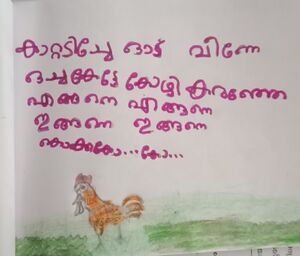 കാറ്റടിച്ചേ ഓട് വീണേ
ഒച്ചകേട്ടേ കോഴി കരഞ്ഞേ
എങ്ങനെ എങ്ങനെ
ഇങ്ങനെ ഇങ്ങനെ
കൊക്കക്കോ...കോ...